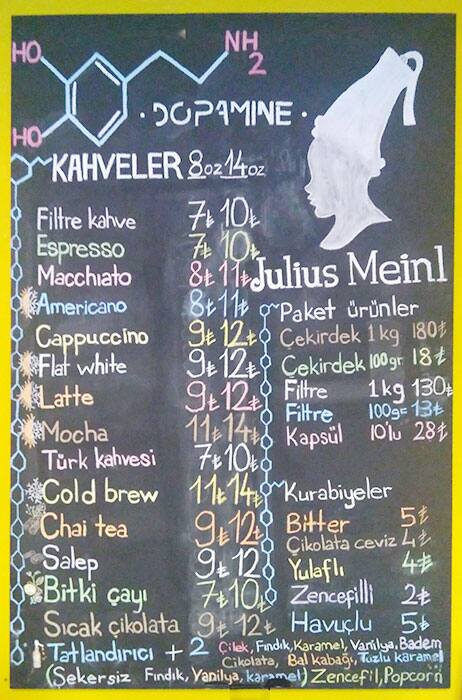 HO
NH
2
HO
·DOPAMINE·
KAHVELER 8oz 14oz
Filtre kahve 7₺ 10₺
Espresso 7₺ 10₺
Macchiato 8₺ 11₺
Americano 8₺ 11₺
Cappuccino 9₺ 12₺
Flat white 9₺ 12₺
Latte 9₺ 12₺
Mocha 11₺ 14₺
Türk kahvesi 7₺ 10₺
Cold brew 11₺ 14₺
Chai tea 9₺ 12₺
Salep 9₺ 12
Bitki çayı 7₺ 10₺
Sıcak çikolata 9₺ 12₺
Julius Meinl
Paket ürünler
Çekirdek 1 kg 180₺
Çekirdek 100 gr 18₺
Filtre 1 kg 130₺
Filtre 100g= 13₺
Kapsül 10'lu 28₺
Kurabiyeler
Bitter 5₺
Çikolata ceviz 4₺
Yulaflı 4₺
Zencefilli 2₺
Havuçlu 5₺
Tatlandırıcı + 2 Çilek, Fındık, Karamel, Vanilya, Badem
Çikolata, Bal kabağı, Tuzlu karamel
(Şekersiz Fındık, Vanilya, karamel) Zencefil, Popcorn